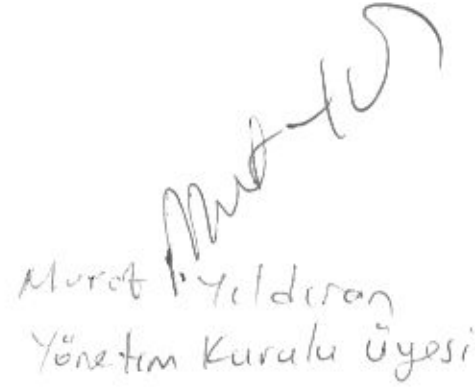 Murat Yıldıran
Yönetim Kurulu Üyesi